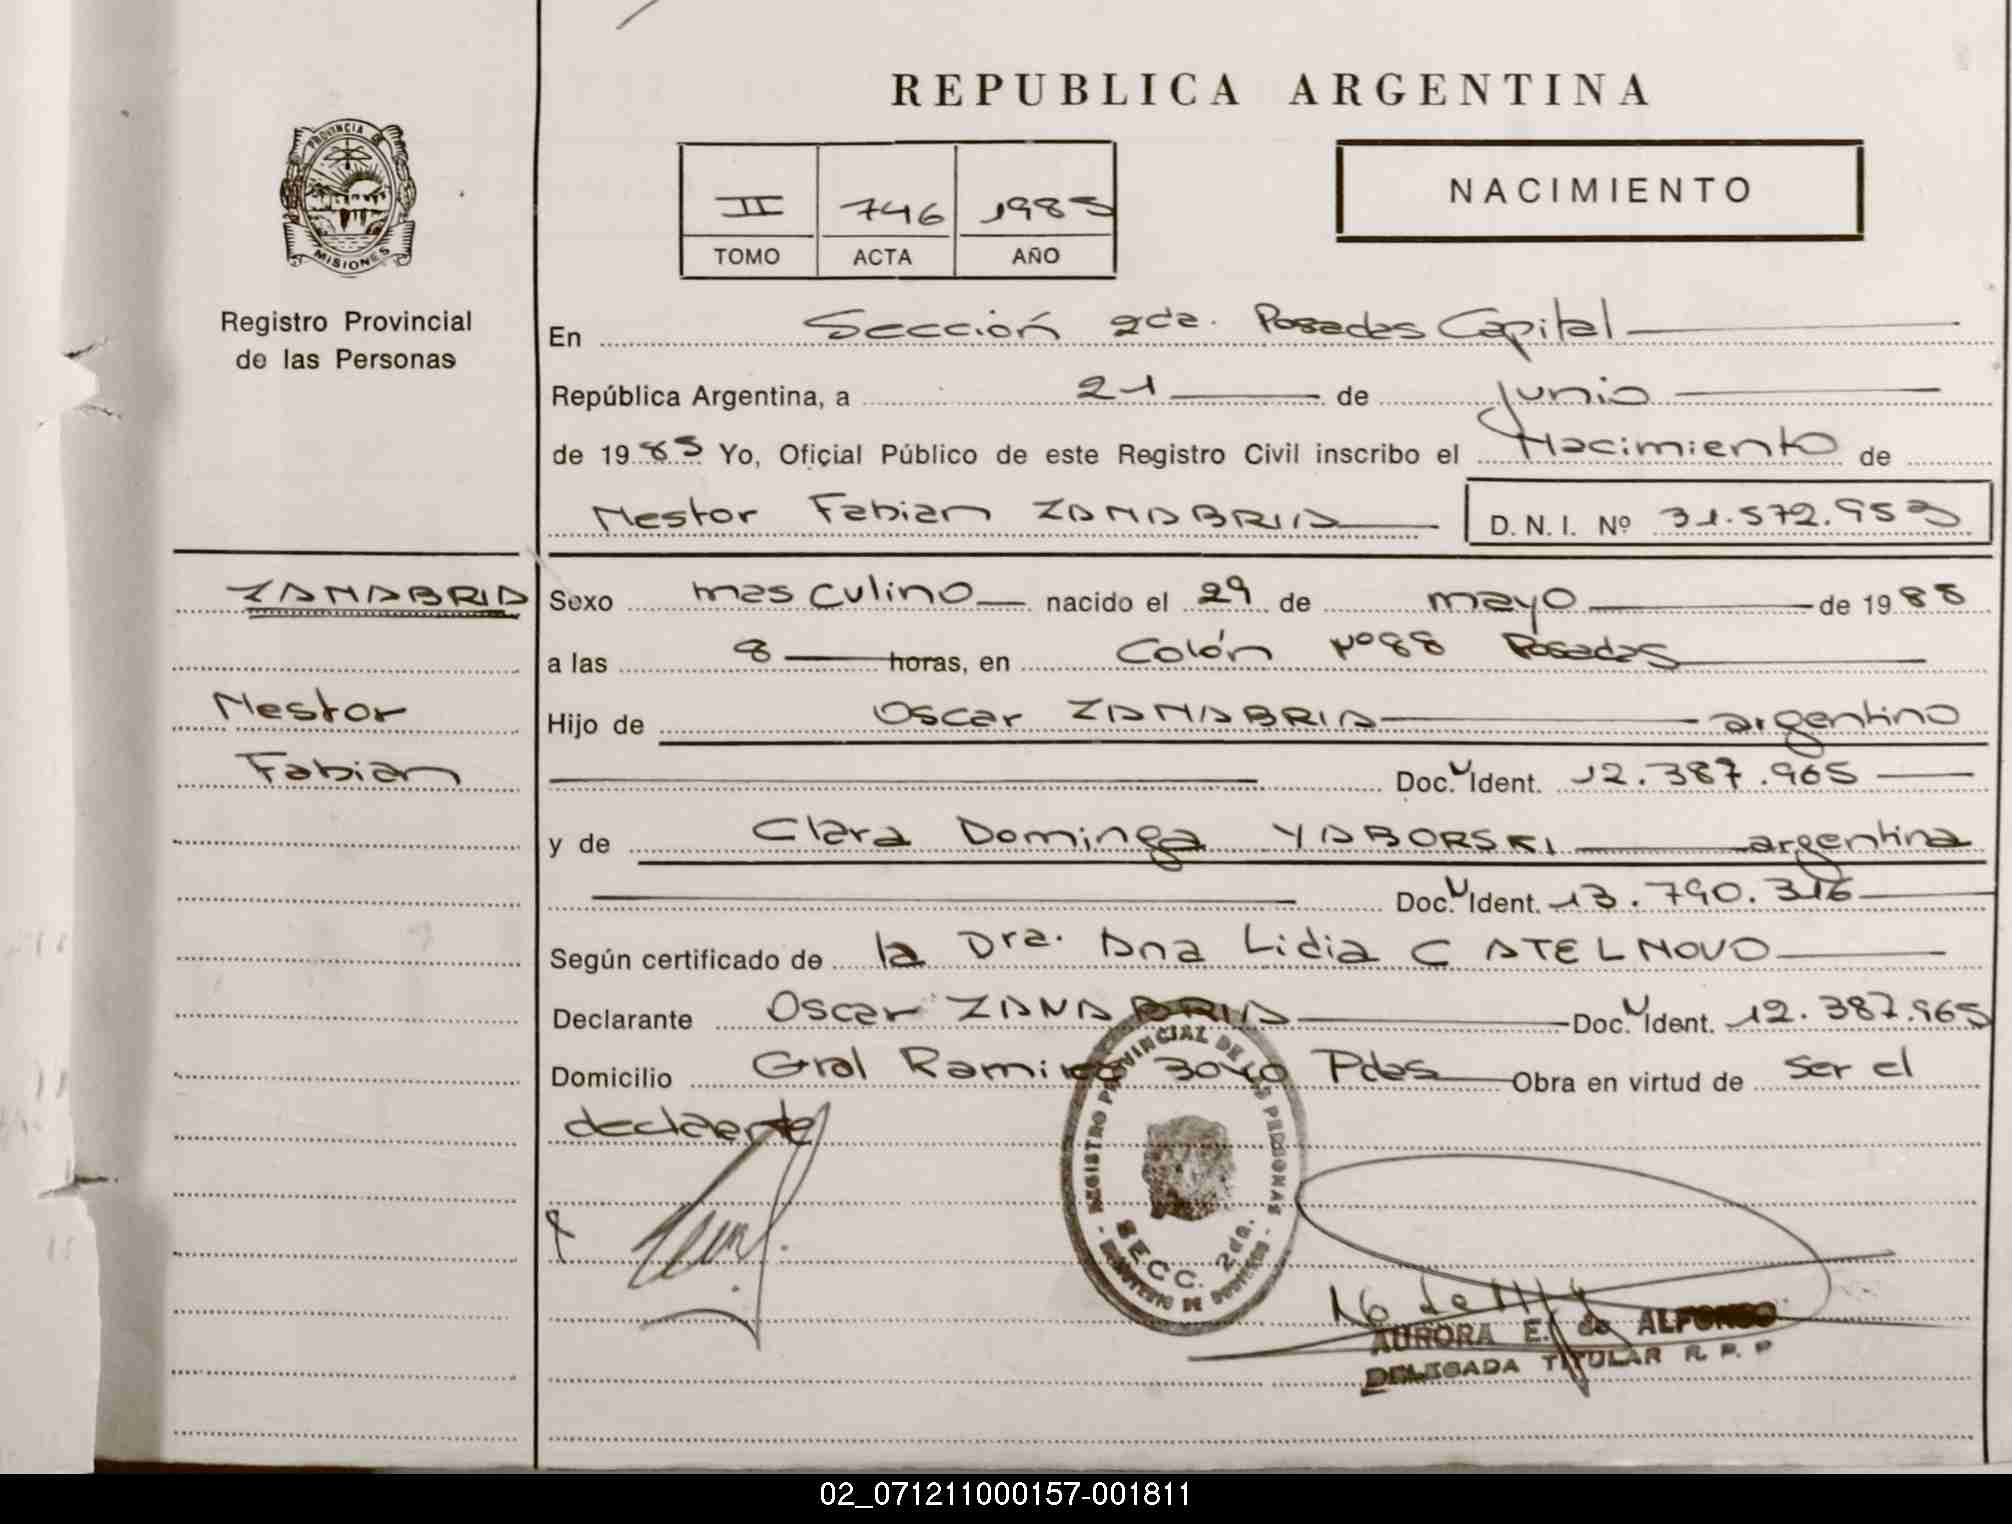 REPUBLICA ARGENTINA
PROVINCIA DE
MISIONES
Registro Provincial
de las Personas
II 746 1985
TOMO ACTA AÑO
NACIMIENTO
En Sección 2da. Posadas Capital
República Argentina, a 21 de Junio
de 1985 Yo, Oficial Público de este Registro Civil inscribo el Nacimiento de
Nestor Fabian ZANABRIA D. N. I. Nº 31.572.953
ZANABRIA
Nestor
Fabian
Sexo masculino nacido el 29 de mayo de 1985
a las 8 horas, en Colón Nº 88 Posadas
Hijo de Oscar ZANABRIA argentino
Doc. Ident. 12.387.965
y de Clara Dominga YABORSKI argentina
Doc. Ident. 13.790.316
Según certificado de la Dra. Ana Lidia CATELNOVO
Declarante Oscar ZANABRIA Doc. Ident. 12.387.965
Domicilio Gral Ramirez 3040 Pdas Obra en virtud de ser el
declarante
REGISTRO PROVINCIAL DE LAS PERSONAS
SECC. 2da.
MINISTERIO DE GOBIERNO
AURORA E. de ALFONSO
DELEGADA TITULAR R. P. P
02_071211000157-001811